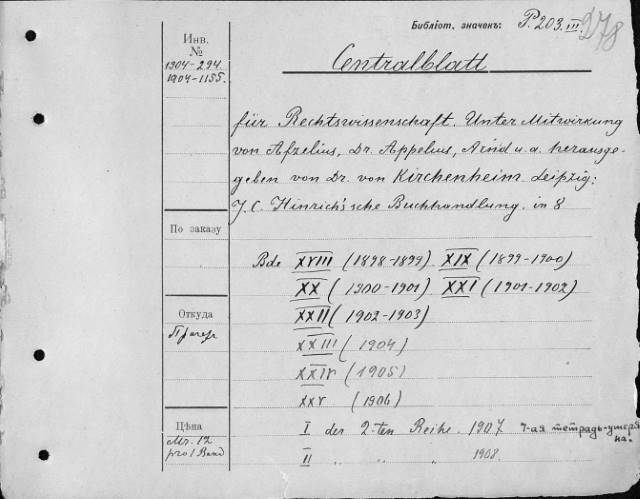 Библіот. значенъ: P. 203. III. 278
Инв.
№
1904-294.
1904-1155.
Centralblatt
für Rechtswissenschaft. Unter Mitwirkung
von Afzelius, Dr. Appelius, Arnd u. a. herausge-
geben von Dr. von Kirchenheim Leipzig:
J. C. Hinrichs'sche Buchhandlung. in 8
По заказу
Bde XVIII (1898-1899) XIX (1899-1900)
XX (1900-1901) XXI (1901-1902)
XXII (1902-1903)
Откуда
XXIII (1904)
XXIV (1905)
XXV (1906)
Цѣна
Mr. 12
pro 1 Band
I der 2-ten Reihe. 1907 7-ая тетрадь-утеря
на.
II " " " 1908.